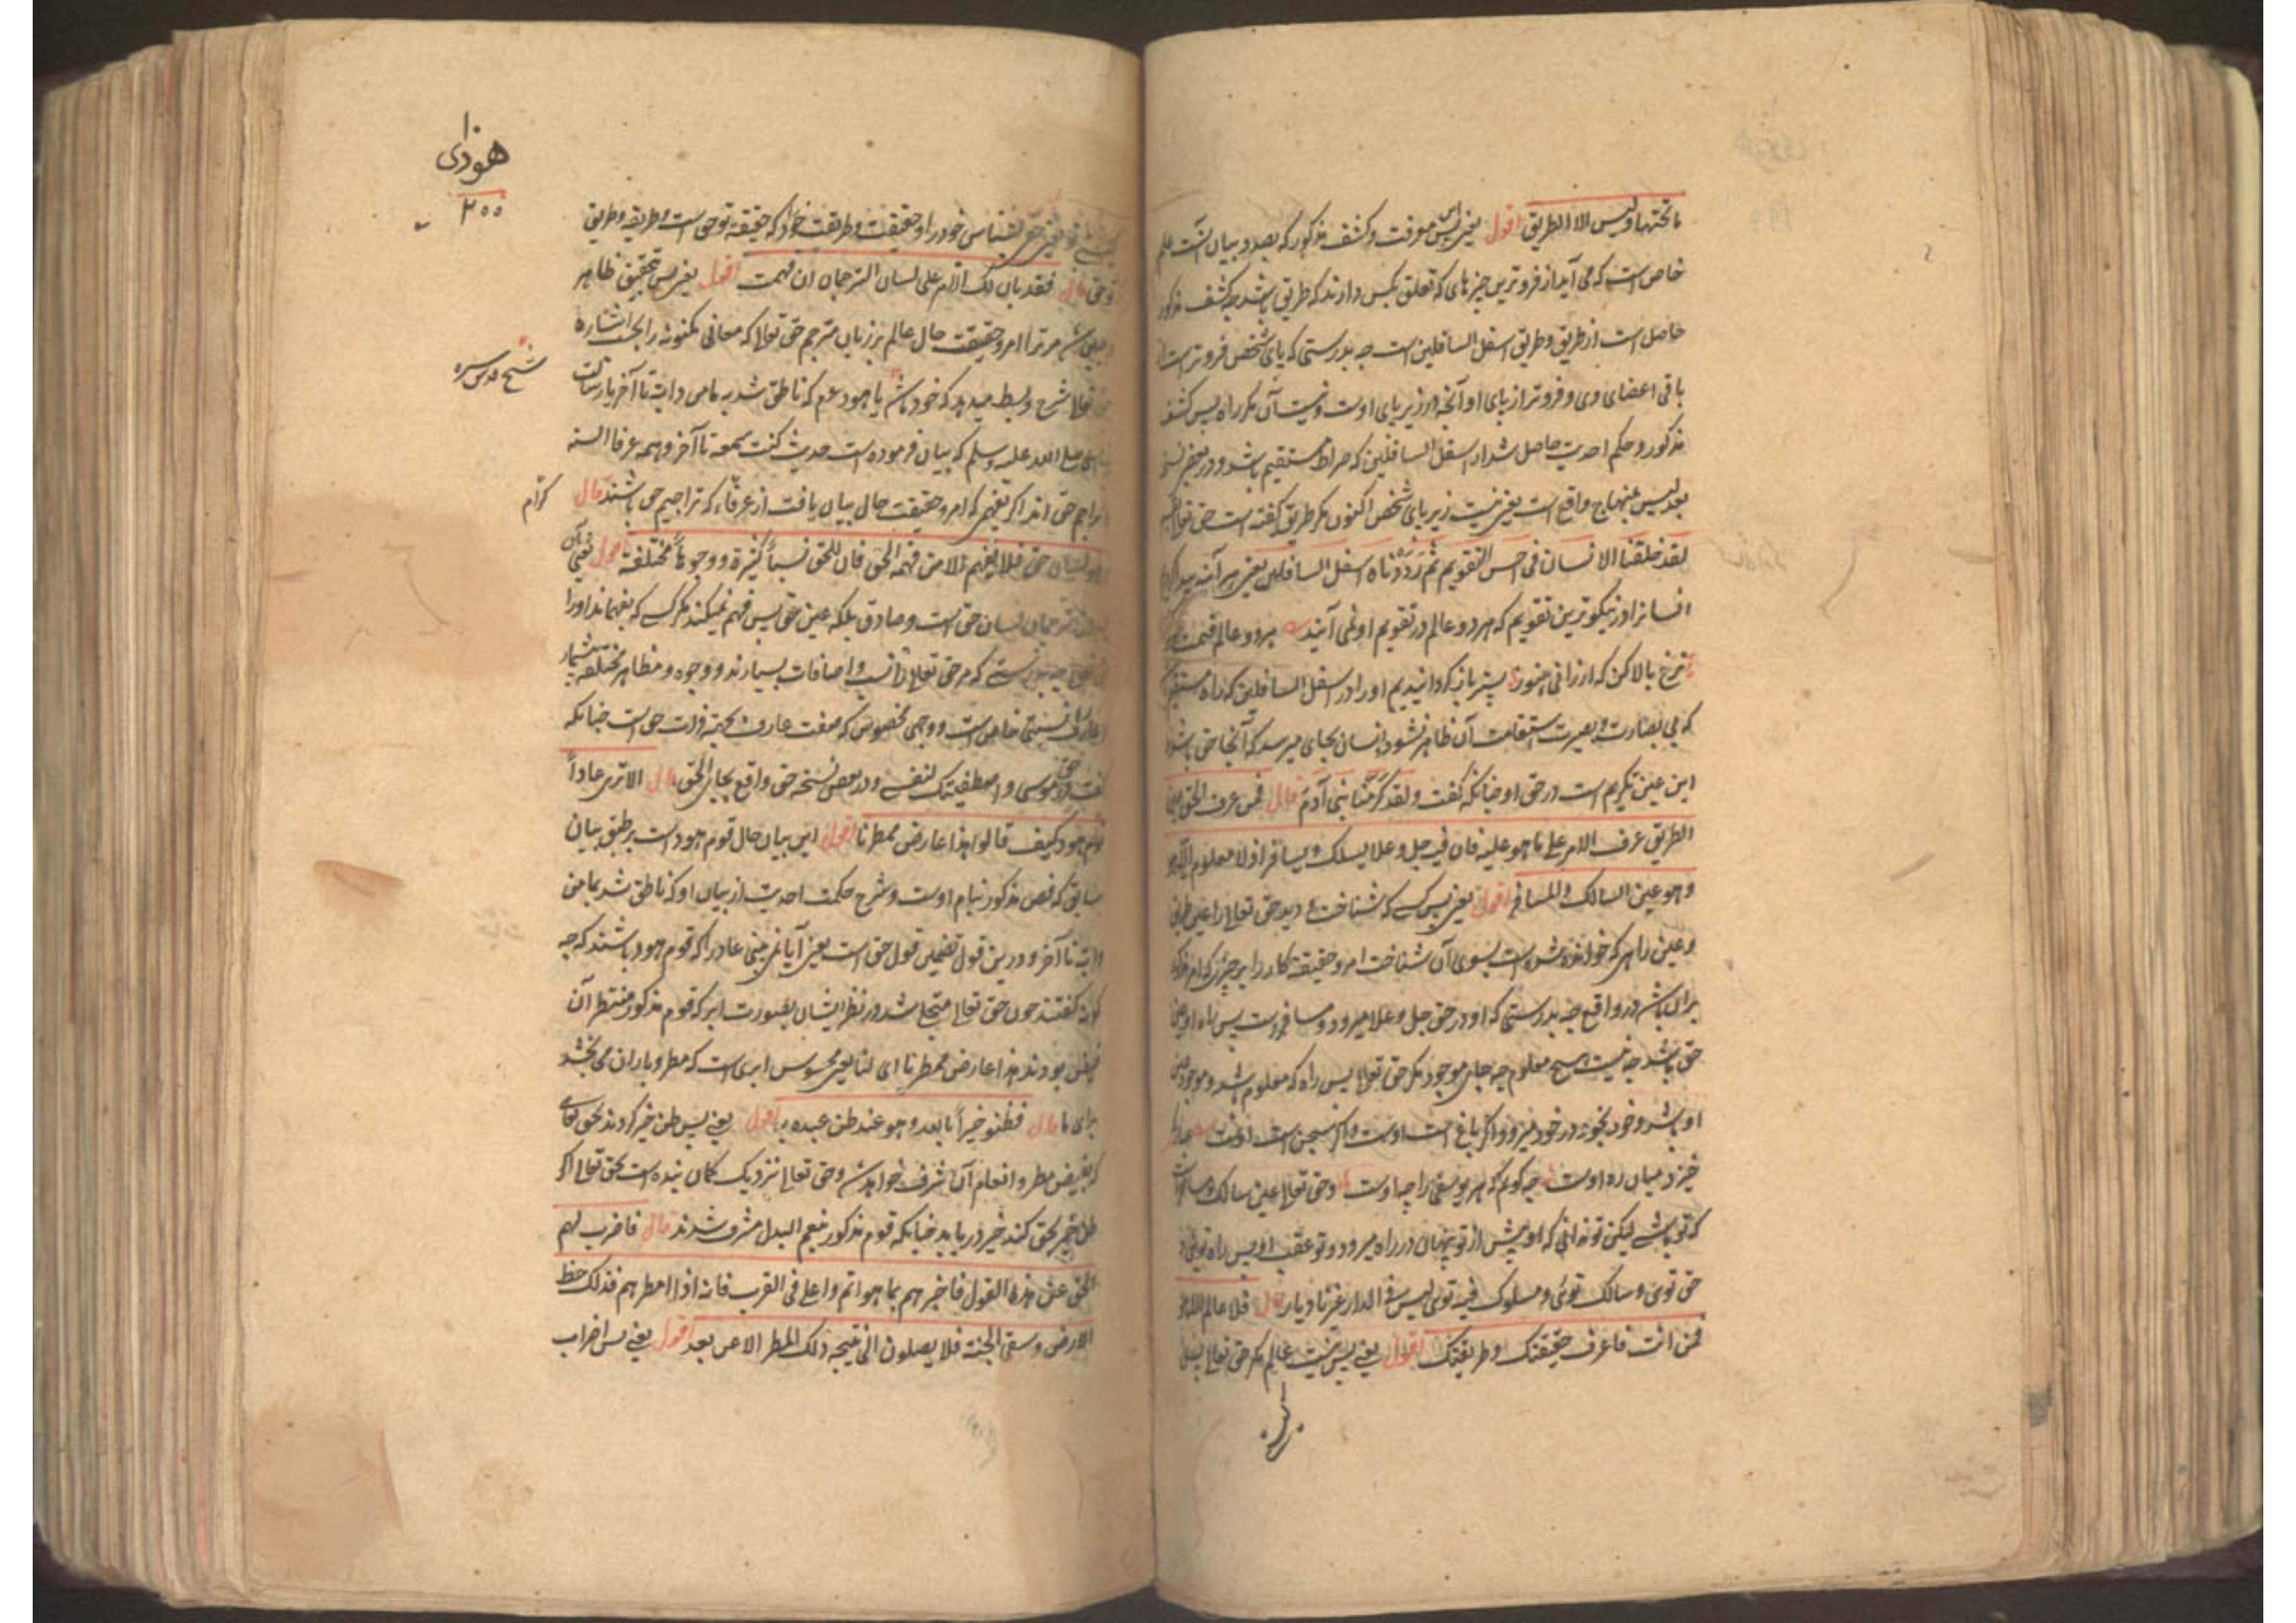 ما تحتها ولیس الا الطریق اقول یعنی پس این معرفت و کشف مذکور که بصدد بیان آنست علم
خاص است که می آید از فروترین چیزهای که تعلق بکس دارند که طریق باشد چه کشف مذکور
حاصل است از طریق و طریق اسفل السافلین است چه بدرستی که پای شخص فروتر است از
باقی اعضای وی و فروتر از پای او آنچه در زیر پای اوست و نیست آن مگر راه پس کشف
مذکور و حکم احدیت حاصل شد از اسفل السافلین که صراط مستقیم باشد و در بعض نسخ
بعد لیس منهاج واقع است یعنی نیست زیر پای شخص اکنون مگر طریق گفته است حق تعالی
لقد خلقنا الانسان فی احسن التقویم ثم رددناه اسفل السافلین یعنی هر آینه پیدا کردیم
انسانرا در نیکوترین تقویم که هر دو عالم در تقویم او نمی آیند هر دو عالم قیمت خود
نرخ بالا کن که ارزانی هنوز پستر باز گردانیدیم او را در اسفل السافلین که راه مستقیم
که بی بصارت و بصیرت استقامت آن ظاهر نشود انسان بجای میرسد که آنجا حق باشد
این عین تکریم است در حق او چنانکه گفت ولقد کرمنا بنی آدم قال فمن عرف الحق عین
الطریق عرف الامر علی ما هو علیه فان فیه جل وعلا یسلک ویسافر اذ لا معلوم الا هو
وهو عین السالک والمسافر اقول یعنی پس کسی که شناخت و دید حق تعالی را عین طریق
و عین راهی که خوانده شده است بسوی آن شناخت امر و حقیقة کار را بر چیزی که امر مذکور
بر آن باشد در واقع چه بدرستی که او در حق جل وعلا میرود و مسافر است پس راه او عین
حق باشد چه نیست هیچ معلوم چه جای موجود مگر حق تعالی پس راه که معلوم شد و موجود عین
او باشد و خود بخود در خود میرود اگر باغ است اوست و اگر سجن است اوست
خیزد میان ره اوست چه گویم که هر سو بسی را چه اوست و حق تعالی عین سالک و مسافر است
که تو باشی لیکن تو ندانی که او پیش از تو پنهان در راه میرود و تو عقب او پس راه توئی و
حق توئی و سالک توئی و مسلوک فیه توی لیس فی الدار غیرنا دیار قال فلا عالم الا هو
فمن انت فاعرف حقیقتک وطریقتک اقول یعنی پس نیست عالم مگر حق تعالی پس
هودی
۲۰۰
کیستی تو یعنی حق بشناسی خود را و حقیقت و طریقت خود که حقیقة تو حق است و طریقه و طریق
تو حق قال فقد بان لک الامر علی لسان الترجمان ان فهمت اقول یعنی پس بتحقیق ظاهر
و مبین شد مر ترا امر و حقیقت حال عالم بر زبان مترجم حق تعالی که معانی مکنونه را بجد اشاره
حق تعالی شرح و بسط میدهد که خود باشد یا هود عم که ناطق شد به ما من دابة تا آخر یا رسالت
شیخ قدس سره
پناهی صلی الله علیه وسلم که بیان فرموده است حدیث کنت سمعه تا آخر و همه عرفا السنه
تراجم حق اند اگر تفهمی که امر و حقیقت حال بیان یافت از عرفاء که تراجیم حق باشند قال
کرام
هو لسان حق فلا یفهمه الا من فهمه الحق فان للحق نسبا کثیرة ووجوها مختلفة اقول یعنی زبان
ترجمان لسان حق است و صادق بلکه عین حق پس فهم نمیکند مگر کسی که بفهماند او را
حق تعالی چه بدرستی که مر حق تعالی را نسب و اضافات بسیارند و وجوه و مظاهر مختلفه بیشمار
عارف نسبتی خاص است و وجهی مخصوص که صفت عارف بجهة ذات حق است چنانکه
گفت در حق موسی واصطفیتک لنفسی و در بعض نسخه حق واقع بجای الحق قال الا تری عادا
قوم هود کیف قالوا هذا عارض ممطرنا اقول این بیان حال قوم هود است بر طبق بیان
سابق که فص مذکور بنام اوست و شرح حکمت احدیت از بیان او که ناطق شد بما من
دابة تا آخر و درین قول تفصیل قول حق است یعنی آیا نمی بینی عاد را که قوم هود باشند که چه
گونه گفتند چون حق تعالی متجلی شد در نظر ایشان بصورت ابر که قوم مذکور منتظر آن
فیض بودند هذا عارض ممطرنا ای لنا یعنی محسوس ابری است که مطر و باران می بخشد
برای ما قال فظنوا خیرا بالله وهو عند ظن عبده به اقول یعنی پس ظن خیر کردند بحق تعالی
که بفیض مطر و انعام آن مشرف خواهد شد و حق تعالی نزدیک گمان بنده است بحق تعالی اگر
ظن خیر بحق کند خیر در یابد چنانکه قوم مذکور بنعم البدل مشرف شدند قال فاضرب لهم
الحق عن هذه القول فاخبرهم بما هو اتم واعلی فی القرب فانه اذا امطرهم فذلک حظ
الارض وسقی الجنة فلا یصلون الی نتیجة ذلک المطر الا عن بعد اقول یعنی پس اضراب